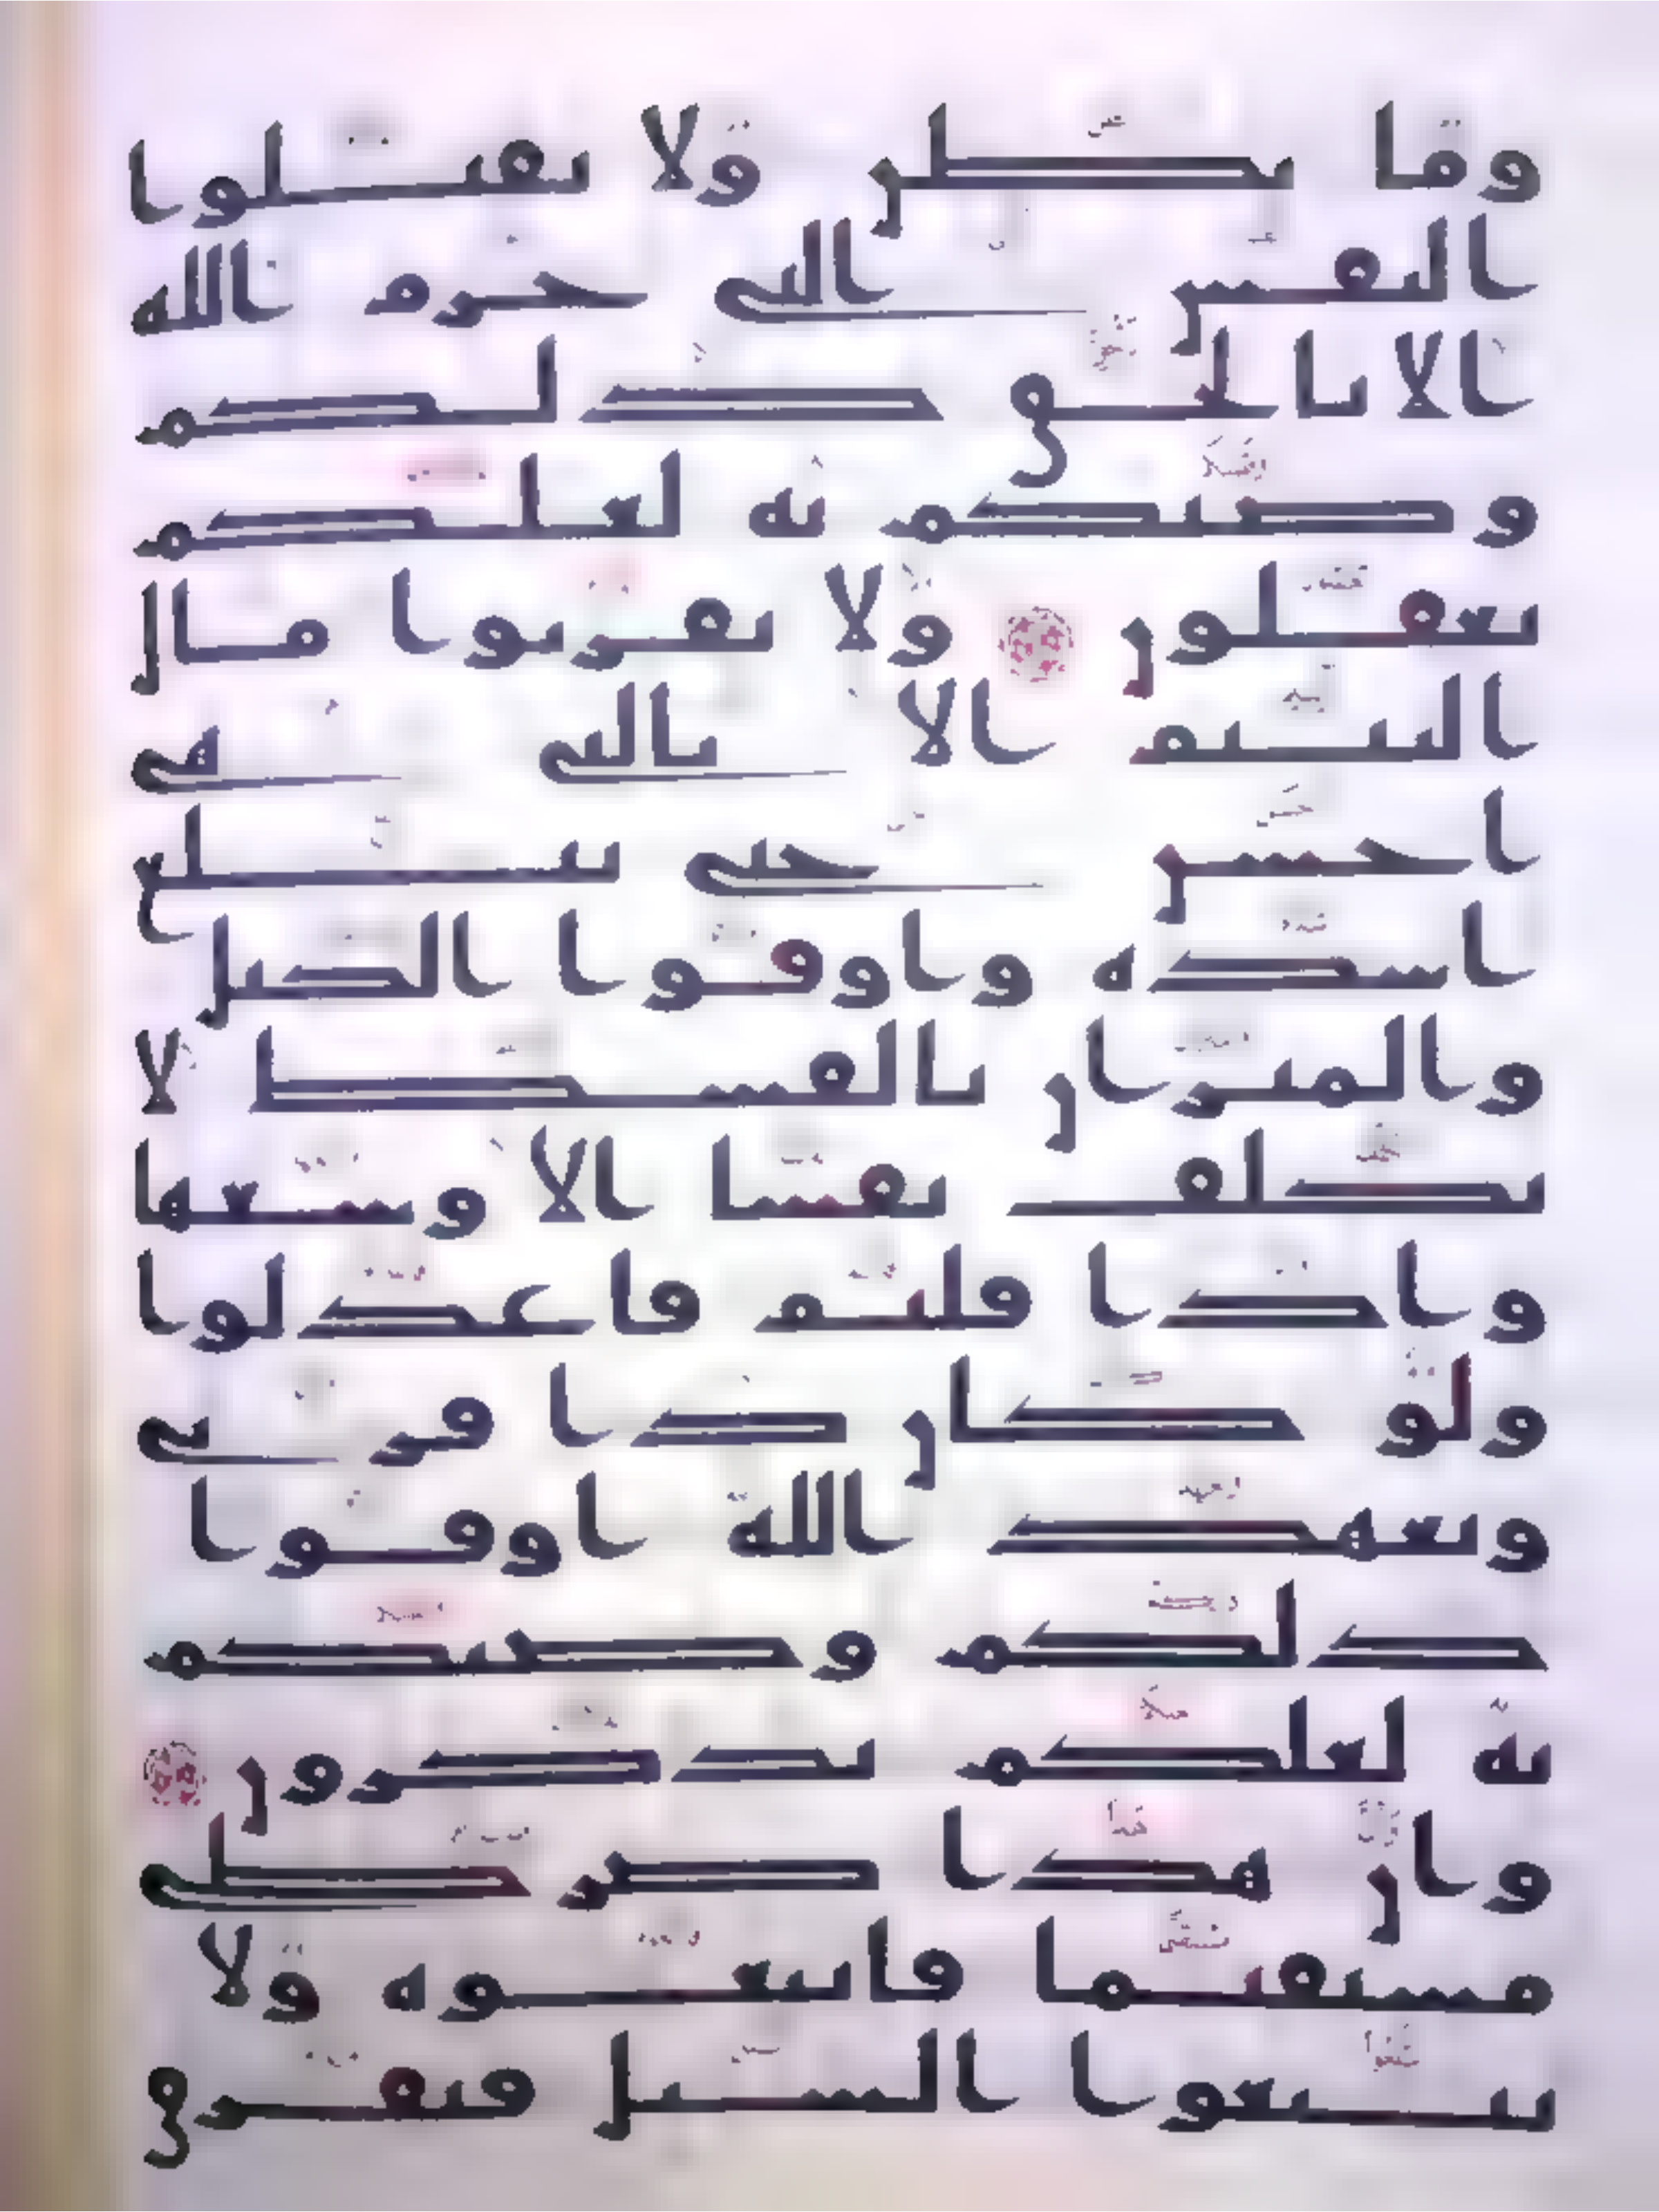 وما بطن ولا تقتلوا
النفس التي حرم الله
الا بالحق ذلكم
وصيكم به لعلكم
تعقلون ولا تقربوا مال
اليتيم الا بالتي هي
احسن حتى يبلغ
اشده واوفوا الكيل
والميزان بالقسط لا
نكلف نفسا الا وسعها
واذا قلتم فاعدلوا
ولو كان ذا قربى
وبعهد الله اوفوا
ذلكم وصيكم
به لعلكم تذكرون
وان هذا صرطي
مستقيما فاتبعوه ولا
تتبعوا السبل فتفرق